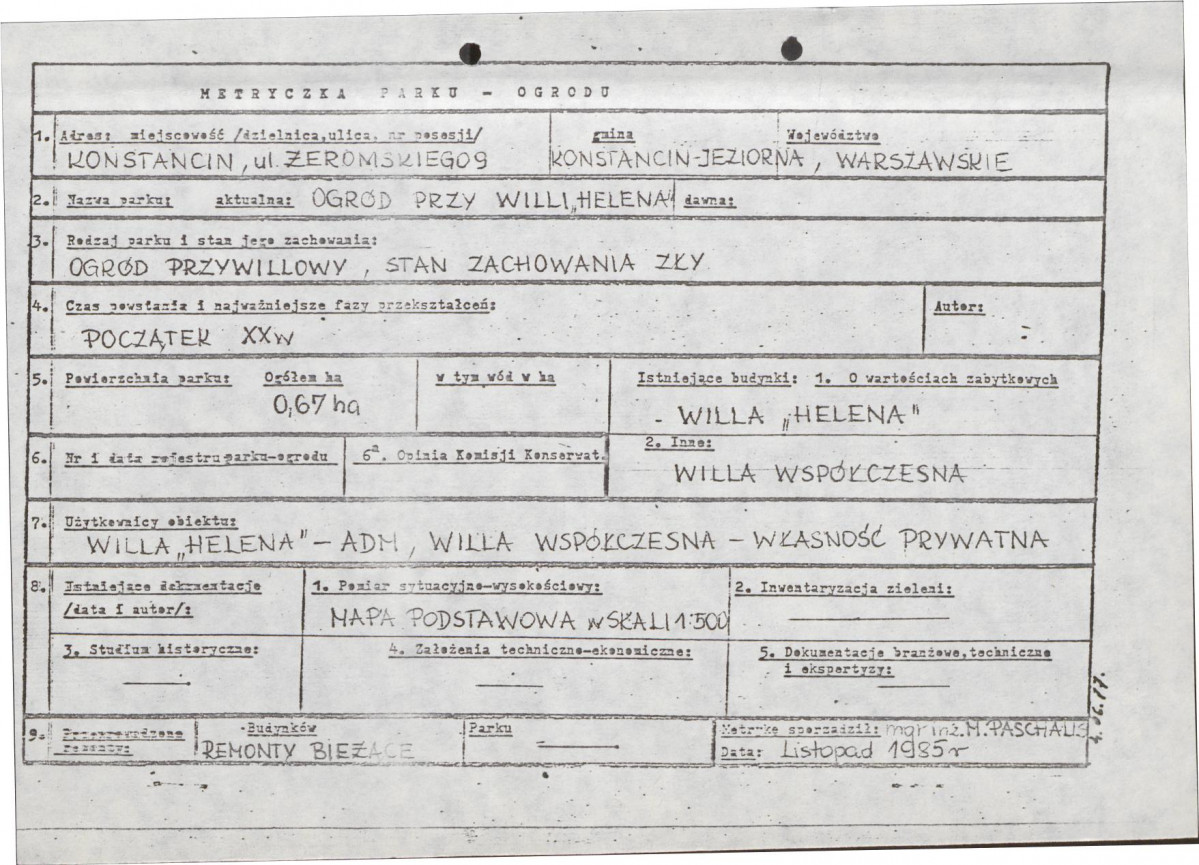 METRYCZKA PARKU - OGRODU
1. Adres: miejscowość /dzielnica,ulica, nr posesji/ gmina Województwo
KONSTANCIN, ul. ŻEROMSKIEGO 9 KONSTANCIN-JEZIORNA, WARSZAWSKIE
2. Nazwa parku: aktualna: OGRÓD PRZY WILLI „HELENA" dawna:
3. Rodzaj parku i stan jego zachowania:
OGRÓD PRZYWILLOWY, STAN ZACHOWANIA ZŁY
4. Czas powstania i najważniejsze fazy przekształceń: Autor:
POCZĄTEK XXw -
5. Powierzchnia parku: Ogółem ha w tym wód w ha Istniejące budynki: 1. O wartościach zabytkowych
0,67 ha - WILLA „HELENA"
6. Nr i data rejestru parku-ogrodu 6a. Opinia Komisji Konserwat. 2. Inne:
WILLA WSPÓŁCZESNA
7. Użytkownicy obiektu:
WILLA „HELENA" – ADM, WILLA WSPÓŁCZESNA – WŁASNOŚĆ PRYWATNA
8. Istniejące dokumentacje 1. Pomiar sytuacyjno-wysokościowy: 2. Inwentaryzacja zieleni:
/data i autor/: MAPA PODSTAWOWA w SKALI 1:500 —
3. Studium historyczne: 4. Założenia techniczno-ekonomiczne: 5. Dokumentacje branżowe,techniczne
— — i ekspertyzy: —
9. Przeprowadzone Budynków Parku Metrykę sporządził: mgr inż. M. PASCHALIS
remonty: REMONTY BIEŻĄCE — Data: Listopad 1985 r